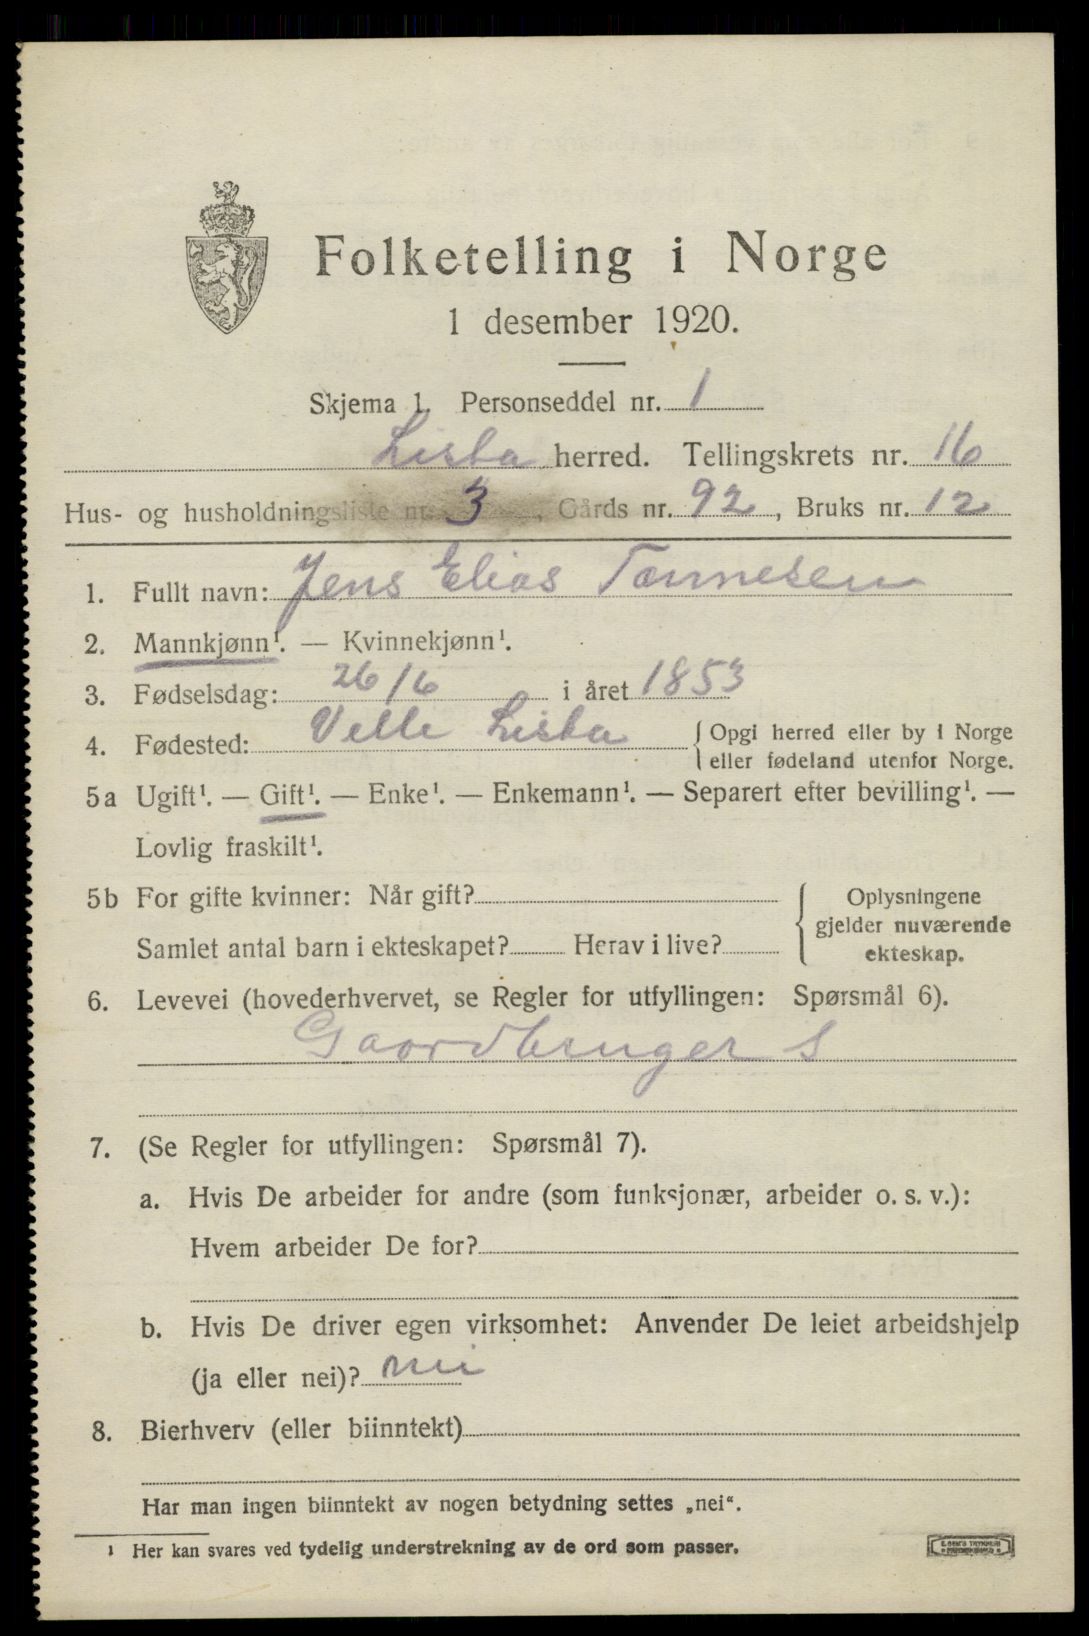 Folketelling i Norge
1 desember 1920.
Skjema 1. Personseddel nr. 1
Lista herred. Tellingskrets nr. 16
Hus- og husholdningsliste nr. 3, Gårds nr. 92, Bruks nr. 12
1. Fullt navn: Jens Elias Tønnesen
2. Mannkjønn¹. — Kvinnekjønn¹.
3. Fødselsdag: 26/6 i året 1853
4. Fødested: Velle Lista { Opgi herred eller by i Norge
eller fødeland utenfor Norge.
5a Ugift¹. — Gift¹. — Enke¹. — Enkemann¹. — Separert efter bevilling¹. —
Lovlig fraskilt¹.
5b For gifte kvinner: Når gift?
Samlet antal barn i ekteskapet? Herav i live?
{ Oplysningene
gjelder nuværende
ekteskap.
6. Levevei (hovederhvervet, se Regler for utfyllingen: Spørsmål 6).
Gaardbruger S
7. (Se Regler for utfyllingen: Spørsmål 7).
a. Hvis De arbeider for andre (som funksjonær, arbeider o. s. v.):
Hvem arbeider De for?
b. Hvis De driver egen virksomhet: Anvender De leiet arbeidshjelp
(ja eller nei)? nei
8. Bierhverv (eller biinntekt)
Har man ingen biinntekt av nogen betydning settes „nei“.
¹ Her kan svares ved tydelig understrekning av de ord som passer.